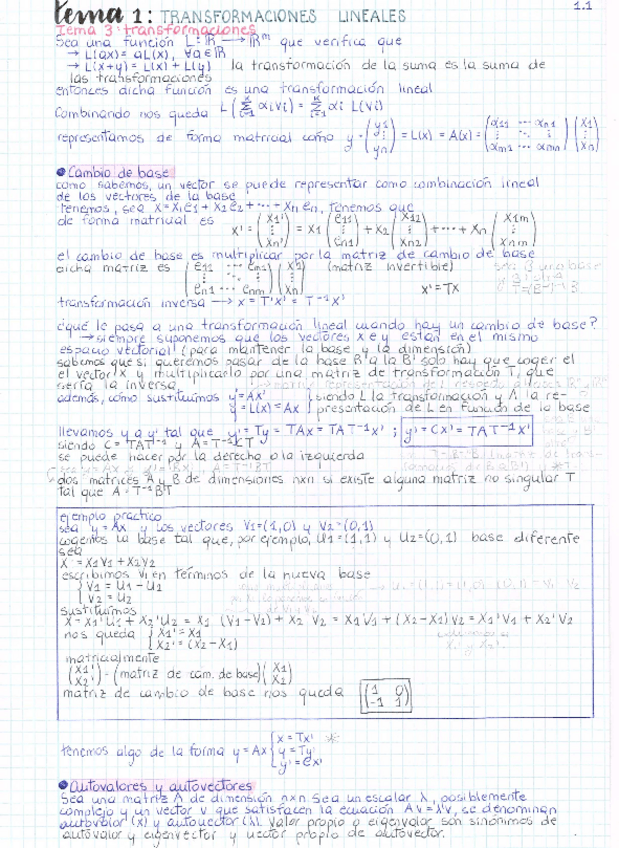 1.1
Tema 1: TRANSFORMACIONES LINEALES
Tema 3 transformaciones
Sea una función L: ℝ → ℝᵐ que verifica que
→ L(ax) = aL(x), ∀a∈ℝ
→ L(x+y) = L(x) + L(y) la transformación de la suma es la suma de
las transformaciones
entonces dicha función es una transformación lineal
Combinando nos queda L(Σ αi vi) = Σ αi L(vi)
representamos de forma matricial como y = (y1 ⋮ yn) = L(x) = A(x) = (α11 ... αn1 ⋮ ⋱ ⋮ αm1 ... αmm)(x1 ⋮ xn)
• Cambio de base
como sabemos, un vector se puede representar como combinación lineal
de los vectores de la base
tenemos, sea x = x1e1 + x2e2 + ... + xn en, tenemos que
de forma matricial es x' = (x1' ⋮ xn') = x1 (e11 ⋮ en1) + x2 (x12 ⋮ xn2) + ... + xn (x1m ⋮ xnm)
el cambio de base es multiplicar por la matriz de cambio de base
dicha matriz es (e11 ... en1 ⋮ ⋱ ⋮ en1 ... enm)(x1 ⋮ xn) (matriz invertible) x' = Tx
transformación inversa → x = T'x' = T⁻¹x'
¿qué le pasa a una transformación lineal cuando hay un cambio de base?
→ siempre suponemos que los vectores x e y están en el mismo
espacio vectorial (para mantener la base y la dimensión)
sabemos que si queremos pasar de la base B a la B' solo hay que coger el
el vector x y multiplicarlo por una matriz de transformación T, que
sería la inversa
además, como sustituimos { y=Ax' y=L(x)=Ax } siendo L la transformación y A la re-
presentación de L en función de la base
llevamos y a y' tal que y' = Ty = TAx = TAT⁻¹x' ; y' = Cx' = TAT⁻¹x'
siendo C = TAT⁻¹ y A = T⁻¹CT
se puede hacer por la derecha o la izquierda
dos matrices A y B de dimensiones nxn si existe alguna matriz no singular T
tal que A = T⁻¹BT
ejemplo práctico
sea y = Ax y los vectores V1=(1,0) y V2=(0,1)
cogemos la base tal que, por ejemplo, U1=(1,1) y U2=(0,1) base diferente
sea
x = x1V1 + x2V2
escribimos Vi en términos de la nueva base
{ V1 = U1 - U2
V2 = U2
sustituimos
x = x1'U1 + x2'U2 = x1 (V1-V2) + x2 V2 = x1V1 + (x2-x1)V2 = x1'V1 + x2'V2
nos queda { x1' = x1
x2' = (x2 - x1)
matricialmente
(x1' x2') = (matriz de cam. de base)(x1 x2)
matriz de cambio de base nos queda (1 0 -1 1)
tenemos algo de la forma y = Ax { x = Tx' y = Ty' y' = Cx'
• Autovalores y autovectores
Sea una matriz A de dimensión nxn Sea un escalar λ, posiblemente
complejo y un vector v que satisfacen la ecuación Av = λv, se denominan
autovalor (λ) y autovector (λ). Valor propio o eigenvalor son sinónimos de
autovalor y eigenvector y vector propio de autovector.